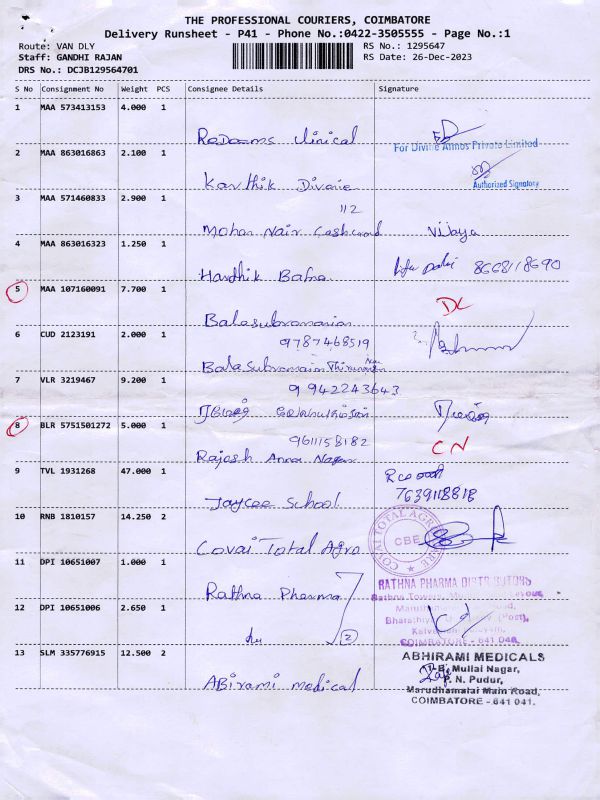 THE PROFESSIONAL COURIERS, COIMBATORE
Delivery Runsheet - P41 - Phone No.:0422-3505555 - Page No.:1
Route: VAN DLY
RS No.: 1295647
Staff: GANDHI RAJAN
RS Date: 26-Dec-2023
DRS No.: DCJB129564701
S No Consignment No Weight PCS Consignee Details Signature
1 MAA 573413153 4.000 1
Clinical
For Divine Annos Private Limited
2 MAA 863016863 2.100 1
Karthik
Authorized Signatory
3 MAA 571460833 2.900 1
112
Mohan Nair Vijaya
4 MAA 863016323 1.250 1
Hardhik Bafna 8668118690
5 MAA 107160091 7.700 1
DL
Balasubramanian
6 CUD 2123191 2.000 1
9787468519
Balasubramanian
7 VLR 3219467 9.200 1
9942243643
8 BLR 5751501272 5.000 1
9611158182
CN
Rajesh Anna Nagar
9 TVL 1931268 47.000 1
7639118818
Jaycee School
10 RNB 1810157 14.250 2
COVAI TOTAL AGRO
CBE
Covai Total Agro
11 DPI 10651007 1.000 1
RATHNA PHARMA DISTRIBUTORS
Rathna Pharma
12 DPI 10651006 2.650 1
2
COIMBATORE - 641 046.
13 SLM 335776915 12.500 2
ABHIRAMI MEDICALS
Mullai Nagar,
P. N. Pudur,
Abirami medical
Marudhamalai Main Road,
COIMBATORE - 641 041.